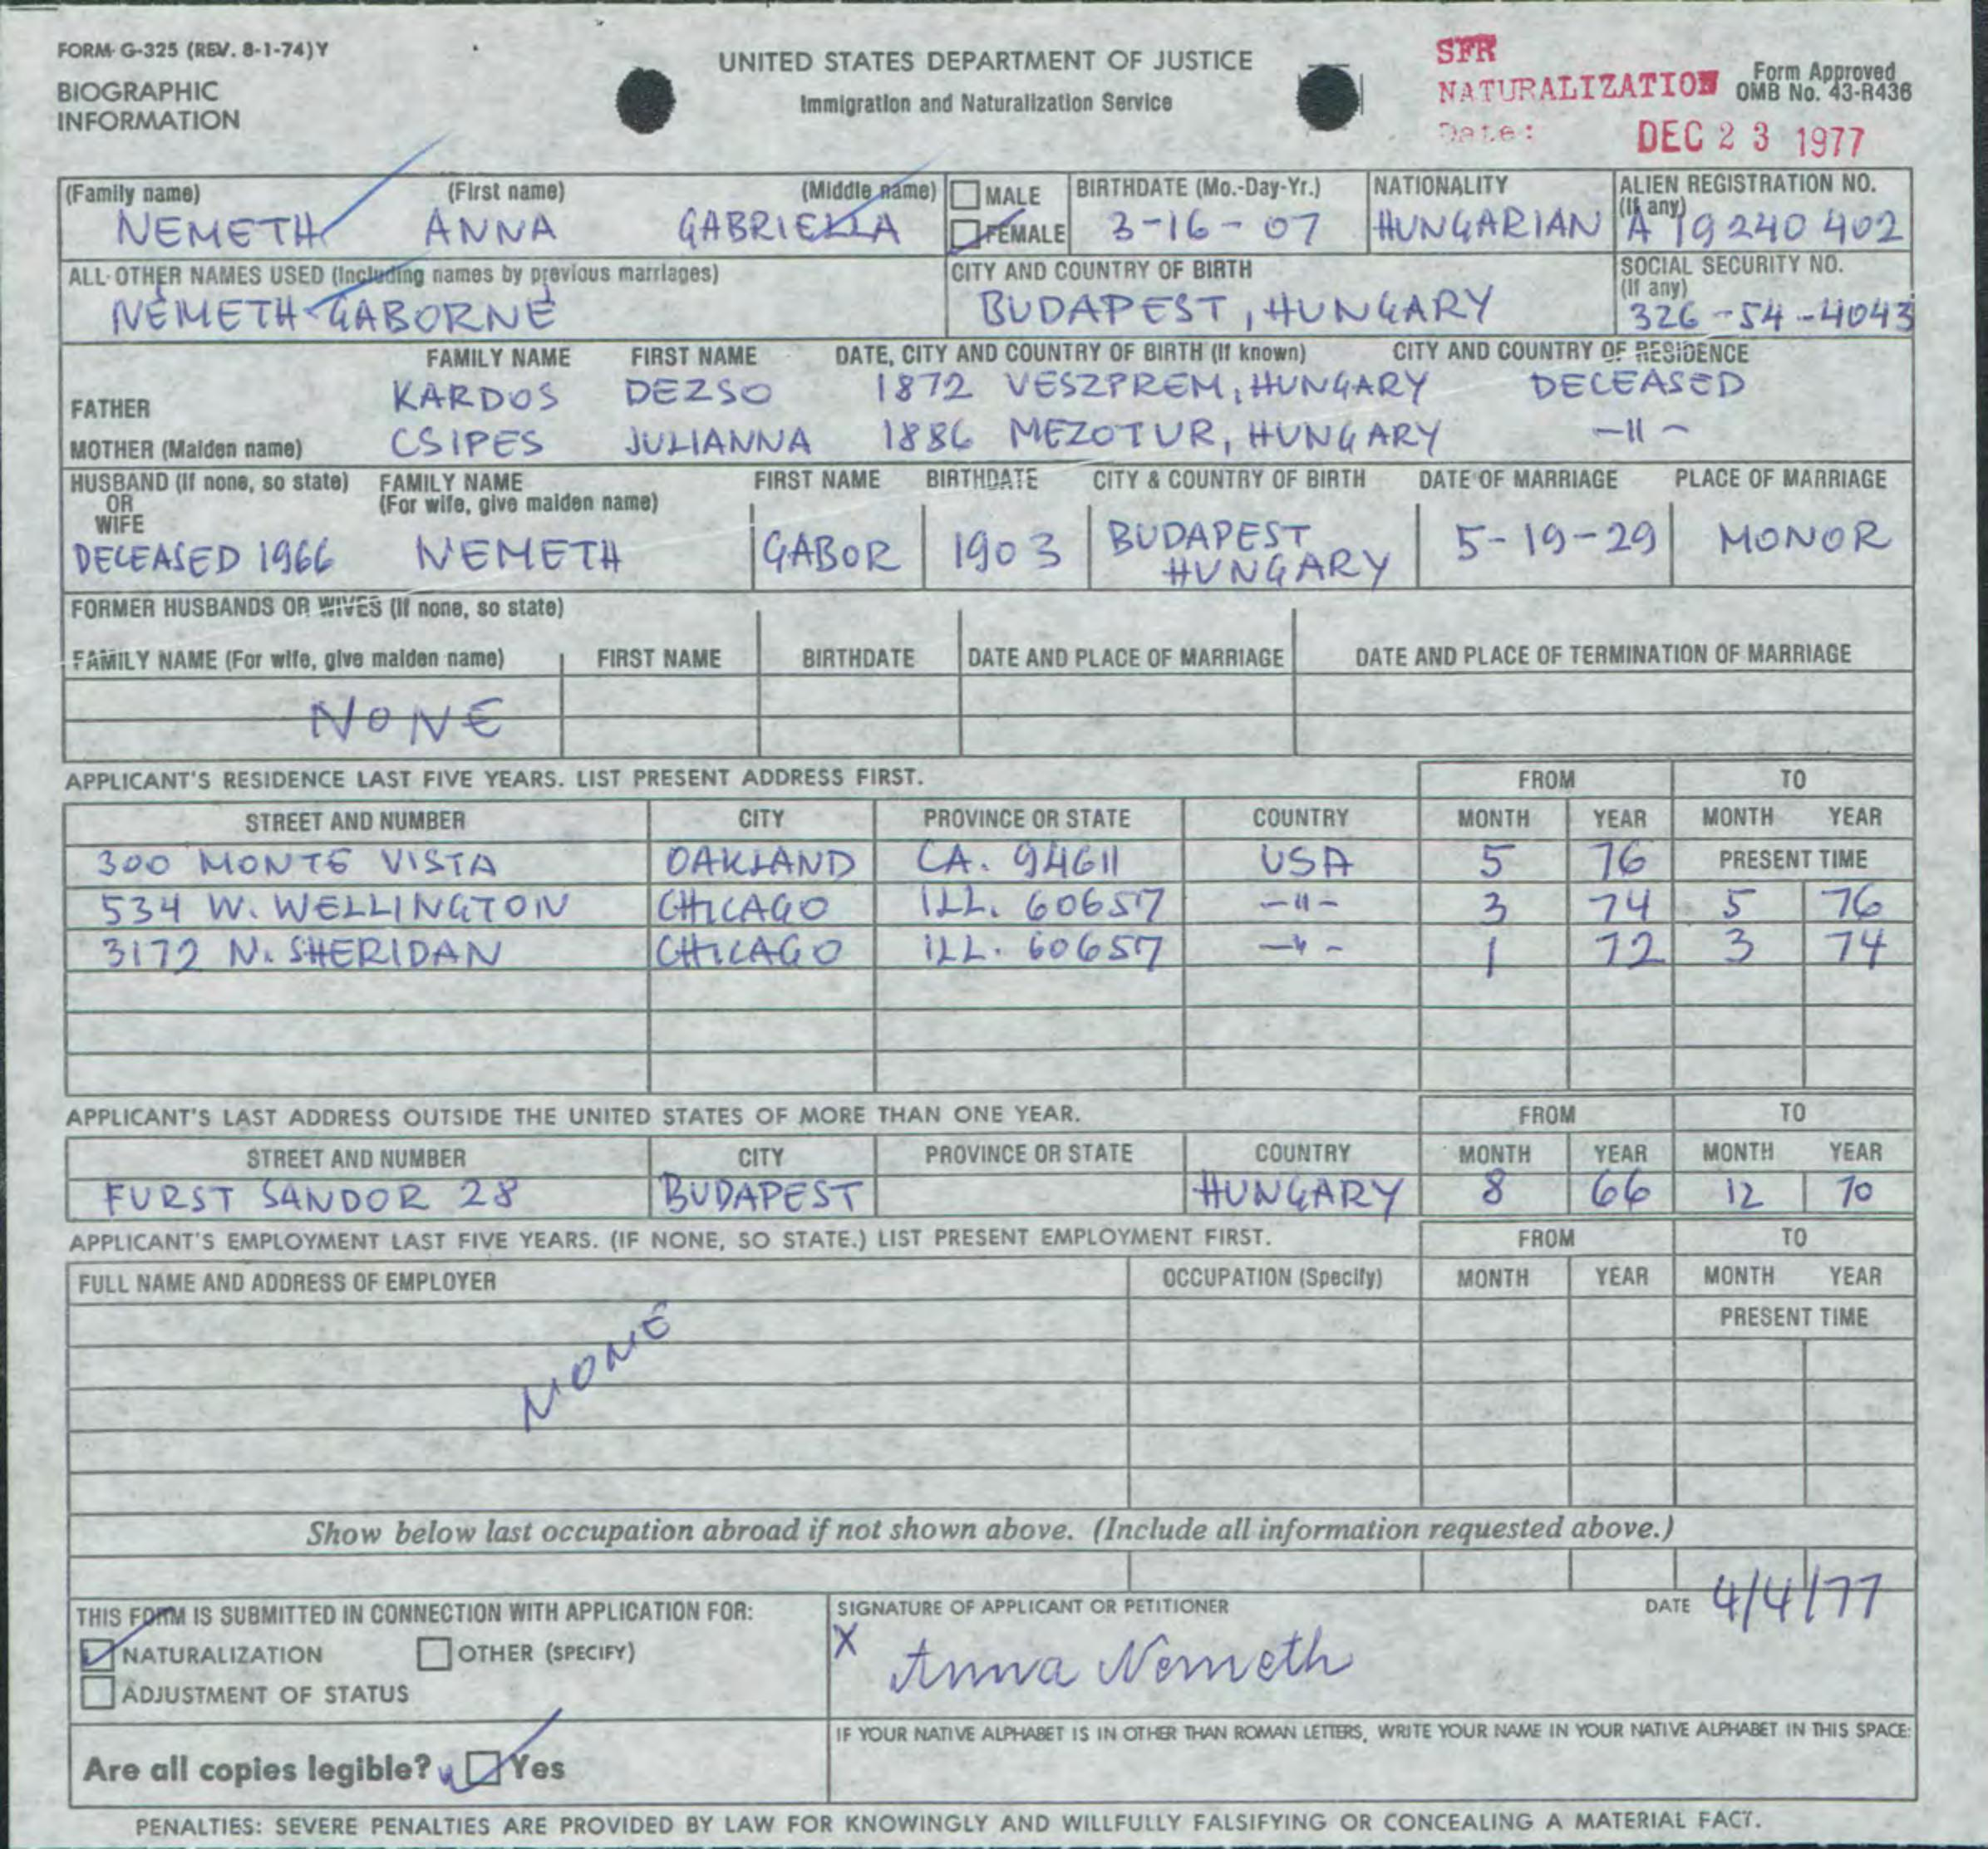 FORM G-325 (REV. 8-1-74) Y
BIOGRAPHIC
INFORMATION
UNITED STATES DEPARTMENT OF JUSTICE
Immigration and Naturalization Service
SFR
NATURALIZATION
Date:
DEC 23 1977
Form Approved
OMB No. 43-R436
(Family name) (First name) (Middle name) MALE BIRTHDATE (Mo.-Day-Yr.) NATIONALITY ALIEN REGISTRATION NO.
(If any)
NEMETH ANNA GABRIELLA FEMALE 3-16-07 HUNGARIAN A 19 240 402
ALL OTHER NAMES USED (Including names by previous marriages) CITY AND COUNTRY OF BIRTH SOCIAL SECURITY NO.
(If any)
NÉMETH GABORNÉ BUDAPEST, HUNGARY 326-54-4043
FAMILY NAME FIRST NAME DATE, CITY AND COUNTRY OF BIRTH (If known) CITY AND COUNTRY OF RESIDENCE
FATHER KARDOS DEZSO 1872 VESZPREM, HUNGARY DECEASED
MOTHER (Maiden name) CSIPES JULIANNA 1886 MEZOTUR, HUNGARY -11-
HUSBAND (If none, so state) FAMILY NAME FIRST NAME BIRTHDATE CITY & COUNTRY OF BIRTH DATE OF MARRIAGE PLACE OF MARRIAGE
OR (For wife, give maiden name)
WIFE
DECEASED 1966 NEMETH GABOR 1903 BUDAPEST HUNGARY 5-19-29 MONOR
FORMER HUSBANDS OR WIVES (If none, so state)
FAMILY NAME (For wife, give maiden name) FIRST NAME BIRTHDATE DATE AND PLACE OF MARRIAGE DATE AND PLACE OF TERMINATION OF MARRIAGE
NONE
APPLICANT'S RESIDENCE LAST FIVE YEARS. LIST PRESENT ADDRESS FIRST. FROM TO
STREET AND NUMBER CITY PROVINCE OR STATE COUNTRY MONTH YEAR MONTH YEAR
300 MONTE VISTA OAKLAND CA. 94611 USA 5 76 PRESENT TIME
534 W. WELLINGTON CHICAGO ILL. 60657 -11- 3 74 5 76
3172 N. SHERIDAN CHICAGO ILL. 60657 -11- 1 72 3 74
APPLICANT'S LAST ADDRESS OUTSIDE THE UNITED STATES OF MORE THAN ONE YEAR. FROM TO
STREET AND NUMBER CITY PROVINCE OR STATE COUNTRY MONTH YEAR MONTH YEAR
FURST SANDOR 28 BUDAPEST HUNGARY 8 66 12 70
APPLICANT'S EMPLOYMENT LAST FIVE YEARS. (IF NONE, SO STATE.) LIST PRESENT EMPLOYMENT FIRST. FROM TO
FULL NAME AND ADDRESS OF EMPLOYER OCCUPATION (Specify) MONTH YEAR MONTH YEAR
PRESENT TIME
NONE
Show below last occupation abroad if not shown above. (Include all information requested above.)
THIS FORM IS SUBMITTED IN CONNECTION WITH APPLICATION FOR: SIGNATURE OF APPLICANT OR PETITIONER DATE 4/4/77
NATURALIZATION OTHER (SPECIFY) X Anna Nemeth
ADJUSTMENT OF STATUS
IF YOUR NATIVE ALPHABET IS IN OTHER THAN ROMAN LETTERS, WRITE YOUR NAME IN YOUR NATIVE ALPHABET IN THIS SPACE:
Are all copies legible? Yes
PENALTIES: SEVERE PENALTIES ARE PROVIDED BY LAW FOR KNOWINGLY AND WILLFULLY FALSIFYING OR CONCEALING A MATERIAL FACT.